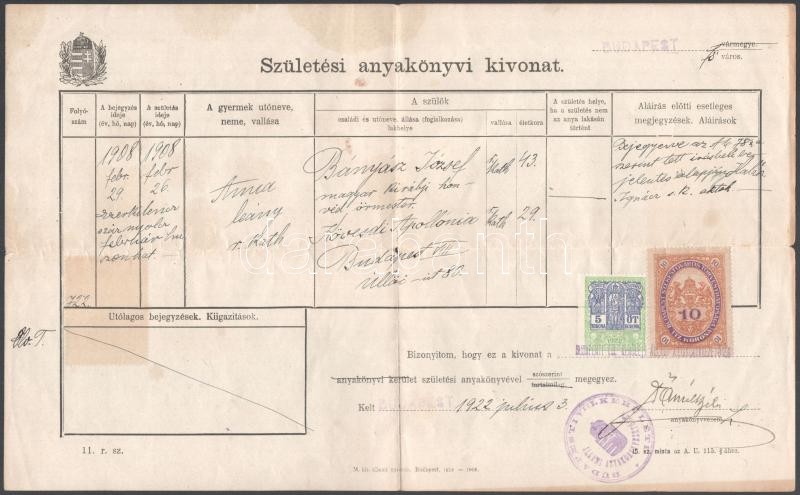 BUDAPEST
vármegye.
város.
Születési anyakönyvi kivonat.
Folyó-
szám
A bejegyzés
ideje
(év, hó, nap)
A születés
ideje
(év, hó, nap)
A gyermek utóneve,
neme, vallása
A szülők
családi és utóneve, állása (foglalkozása)
lakhelye
vallása
életkora
A születés helye,
ha a születés nem
az anya lakásán
történt
Aláírás előtti esetleges
megjegyzések. Aláírások
722.
1908
febr.
29.
1908
febr.
26.
ezerkilenc
száznyolc
február hu
szonhat
Anna
leány
r. kath
Bányász József
magyar királyi hon-
véd, őrmester.
Kövesdi Apollonia
Budapest VIII
Üllői-út 82
r. kath
43.
r. kath
29.
Bejegyezve az
szerint tett írásbeli be-
jelentés alapján
Ignácz s. k.
Utólagos bejegyzések. Kiigazítások.
5 ÖT
KORONA KORONA
10
TIZ KORONA
Bizonyítom, hogy ez a kivonat a
anyakönyvi kerület születési anyakönyvével
szószerint
tartalmilag
megegyez.
Kelt BUDAPEST 1922 július 3.
anyakönyvvezető
11. r. sz.
M. kir. állami nyomda. Budapest, 1919 — 1908.
15. sz. minta az A. U. 115. §-ához.